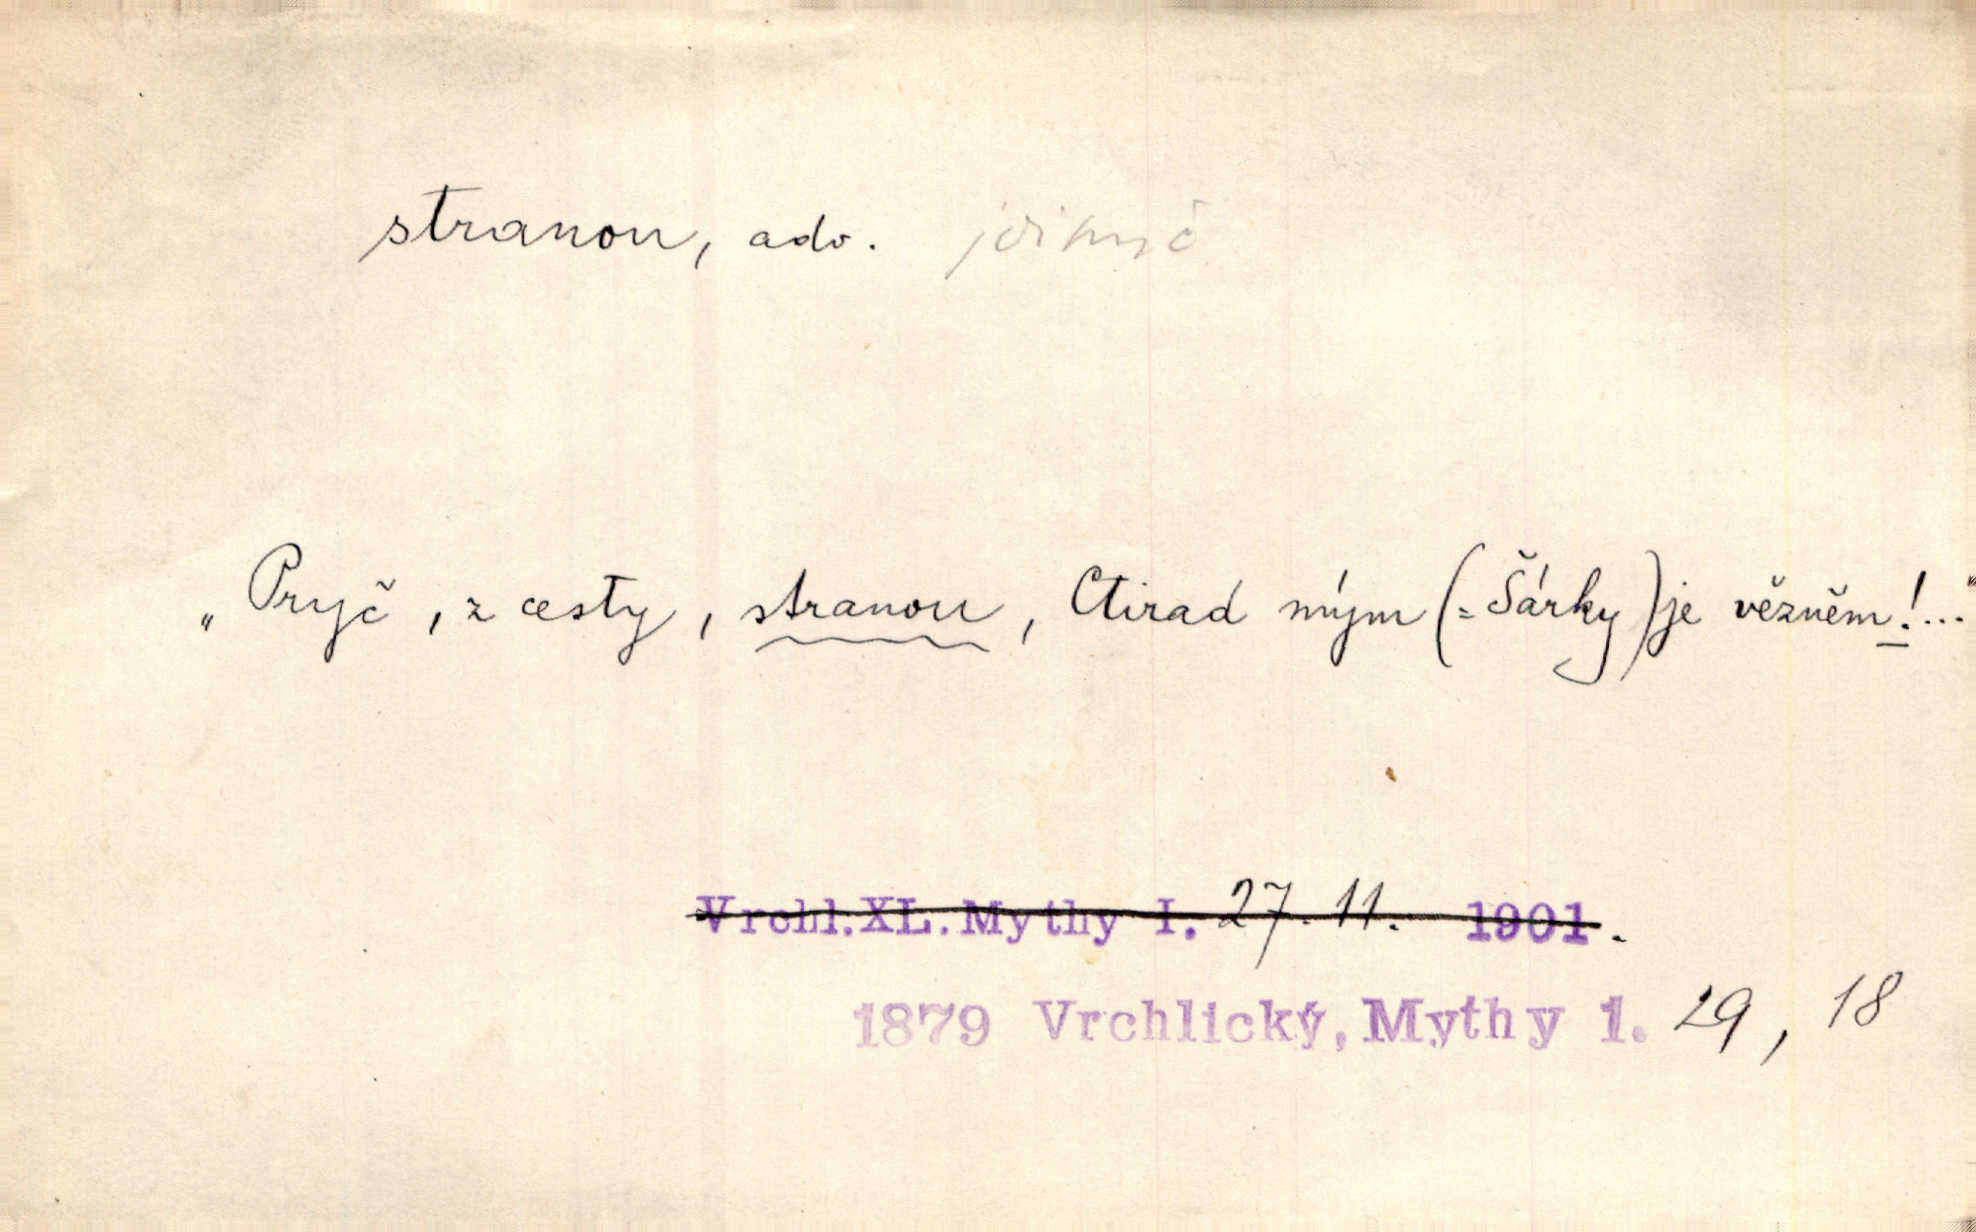 stranou, adv.
„Pryč, z cesty, stranou, Ctirad mým (= Šárky) je vězněm!..."
Vrchl. XL. Mythy I. 27. 11. 1901.
1879 Vrchlický, Mythy 1. 29, 18